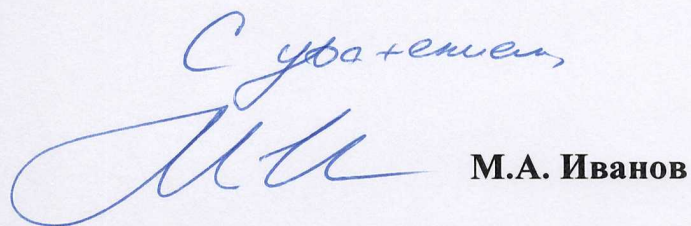 С уважением,
М.А. Иванов